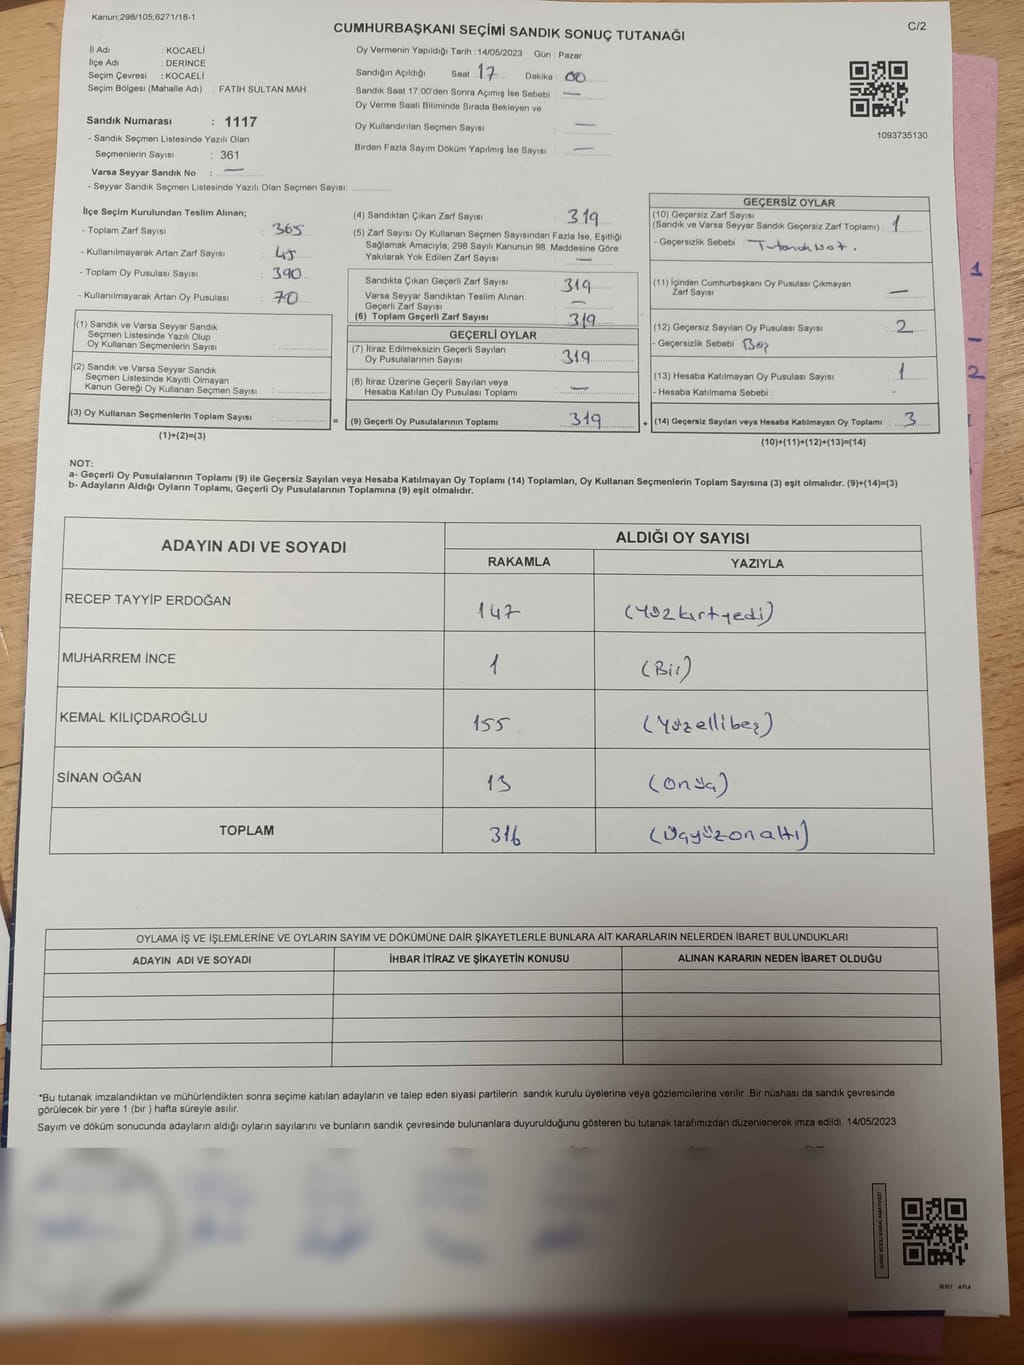 Kanun;298/105;6271/18-1
CUMHURBAŞKANI SEÇİMİ SANDIK SONUÇ TUTANAĞI
C/2
İl Adı : KOCAELİ
İlçe Adı : DERİNCE
Seçim Çevresi : KOCAELİ
Seçim Bölgesi (Mahalle Adı) : FATİH SULTAN MAH.
Sandık Numarası : 1117
- Sandık Seçmen Listesinde Yazılı Olan
Seçmenlerin Sayısı : 361
Varsa Seyyar Sandık No : —
- Seyyar Sandık Seçmen Listesinde Yazılı Olan Seçmen Sayısı: ............
Oy Vermenin Yapıldığı Tarih : 14/05/2023 Gün : Pazar
Sandığın Açıldığı Saat : 17 Dakika : 00
Sandık Saat 17.00'den Sonra Açımış İse Sebebi : —
Oy Verme Saati Bitiminde Sırada Bekleyen ve
Oy Kullandırılan Seçmen Sayısı : —
Birden Fazla Sayım Döküm Yapılmış İse Sayısı : —
1093735130
İlçe Seçim Kurulundan Teslim Alınan;
- Toplam Zarf Sayısı : 365
- Kullanılmayarak Artan Zarf Sayısı : 45
- Toplam Oy Pusulası Sayısı : 390
- Kullanılmayarak Artan Oy Pusulası : 70
(1) Sandık ve Varsa Seyyar Sandık
Seçmen Listesinde Yazılı Olup
Oy Kullanan Seçmenlerin Sayısı : ............
(2) Sandık ve Varsa Seyyar Sandık
Seçmen Listesinde Kayıtlı Olmayan
Kanun Gereği Oy Kullanan Seçmen Sayısı : ............
(3) Oy Kullanan Seçmenlerin Toplam Sayısı : ............ =
(1)+(2)=(3)
(4) Sandıktan Çıkan Zarf Sayısı : 319
(5) Zarf Sayısı Oy Kullanan Seçmen Sayısından Fazla İse, Eşitliği
Sağlamak Amacıyla; 298 Sayılı Kanunun 98. Maddesine Göre
Yakılarak Yok Edilen Zarf Sayısı : —
Sandıkta Çıkan Geçerli Zarf Sayısı : 319
Varsa Seyyar Sandıktan Teslim Alınan
Geçerli Zarf Sayısı : —
(6) Toplam Geçerli Zarf Sayısı : 319
GEÇERLİ OYLAR
(7) İtiraz Edilmeksizin Geçerli Sayılan
Oy Pusulalarının Sayısı : 319
(8) İtiraz Üzerine Geçerli Sayılan veya
Hesaba Katılan Oy Pusulası Toplamı : —
(9) Geçerli Oy Pusulalarının Toplamı : 319 +
GEÇERSİZ OYLAR
(10) Geçersiz Zarf Sayısı
(Sandık ve Varsa Seyyar Sandık Geçersiz Zarf Toplamı) : 1
- Geçersizlik Sebebi : Tutanak Not.
(11) İçinden Cumhurbaşkanı Oy Pusulası Çıkmayan
Zarf Sayısı : —
(12) Geçersiz Sayılan Oy Pusulası Sayısı : 2
- Geçersizlik Sebebi Boş
(13) Hesaba Katılmayan Oy Pusulası Sayısı : 1
- Hesaba Katılmama Sebebi :
(14) Geçersiz Sayılan veya Hesaba Katılmayan Oy Toplamı : 3
(10)+(11)+(12)+(13)=(14)
1
-
2
NOT:
a- Geçerli Oy Pusulalarının Toplamı (9) ile Geçersiz Sayılan veya Hesaba Katılmayan Oy Toplamı (14) Toplamları, Oy Kullanan Seçmenlerin Toplam Sayısına (3) eşit olmalıdır. (9)+(14)=(3)
b- Adayların Aldığı Oyların Toplamı, Geçerli Oy Pusulalarının Toplamına (9) eşit olmalıdır.
ADAYIN ADI VE SOYADI ALDIĞI OY SAYISI
RAKAMLA YAZIYLA
RECEP TAYYİP ERDOĞAN 147 (Yüzkırkyedi)
MUHARREM İNCE 1 (Bir)
KEMAL KILIÇDAROĞLU 155 (Yüzellibeş)
SİNAN OĞAN 13 (Onüç)
TOPLAM 316 (Üçyüzonaltı)
OYLAMA İŞ VE İŞLEMLERİNE VE OYLARIN SAYIM VE DÖKÜMÜNE DAİR ŞİKAYETLERLE BUNLARA AİT KARARLARIN NELERDEN İBARET BULUNDUKLARI
ADAYIN ADI VE SOYADI İHBAR İTİRAZ VE ŞİKAYETİN KONUSU ALINAN KARARIN NEDEN İBARET OLDUĞU
*Bu tutanak imzalandıktan ve mühürlendikten sonra seçime katılan adayların ve talep eden siyasi partilerin sandık kurulu üyelerine veya gözlemcilerine verilir .Bir nüshası da sandık çevresinde
görülecek bir yere 1 (bir ) hafta süreyle asılır.
Sayım ve döküm sonucunda adayların aldığı oyların sayılarını ve bunların sandık çevresinde bulunanlara duyurulduğunu gösteren bu tutanak tarafımızdan düzenlenerek imza edildi. 14/05/2023